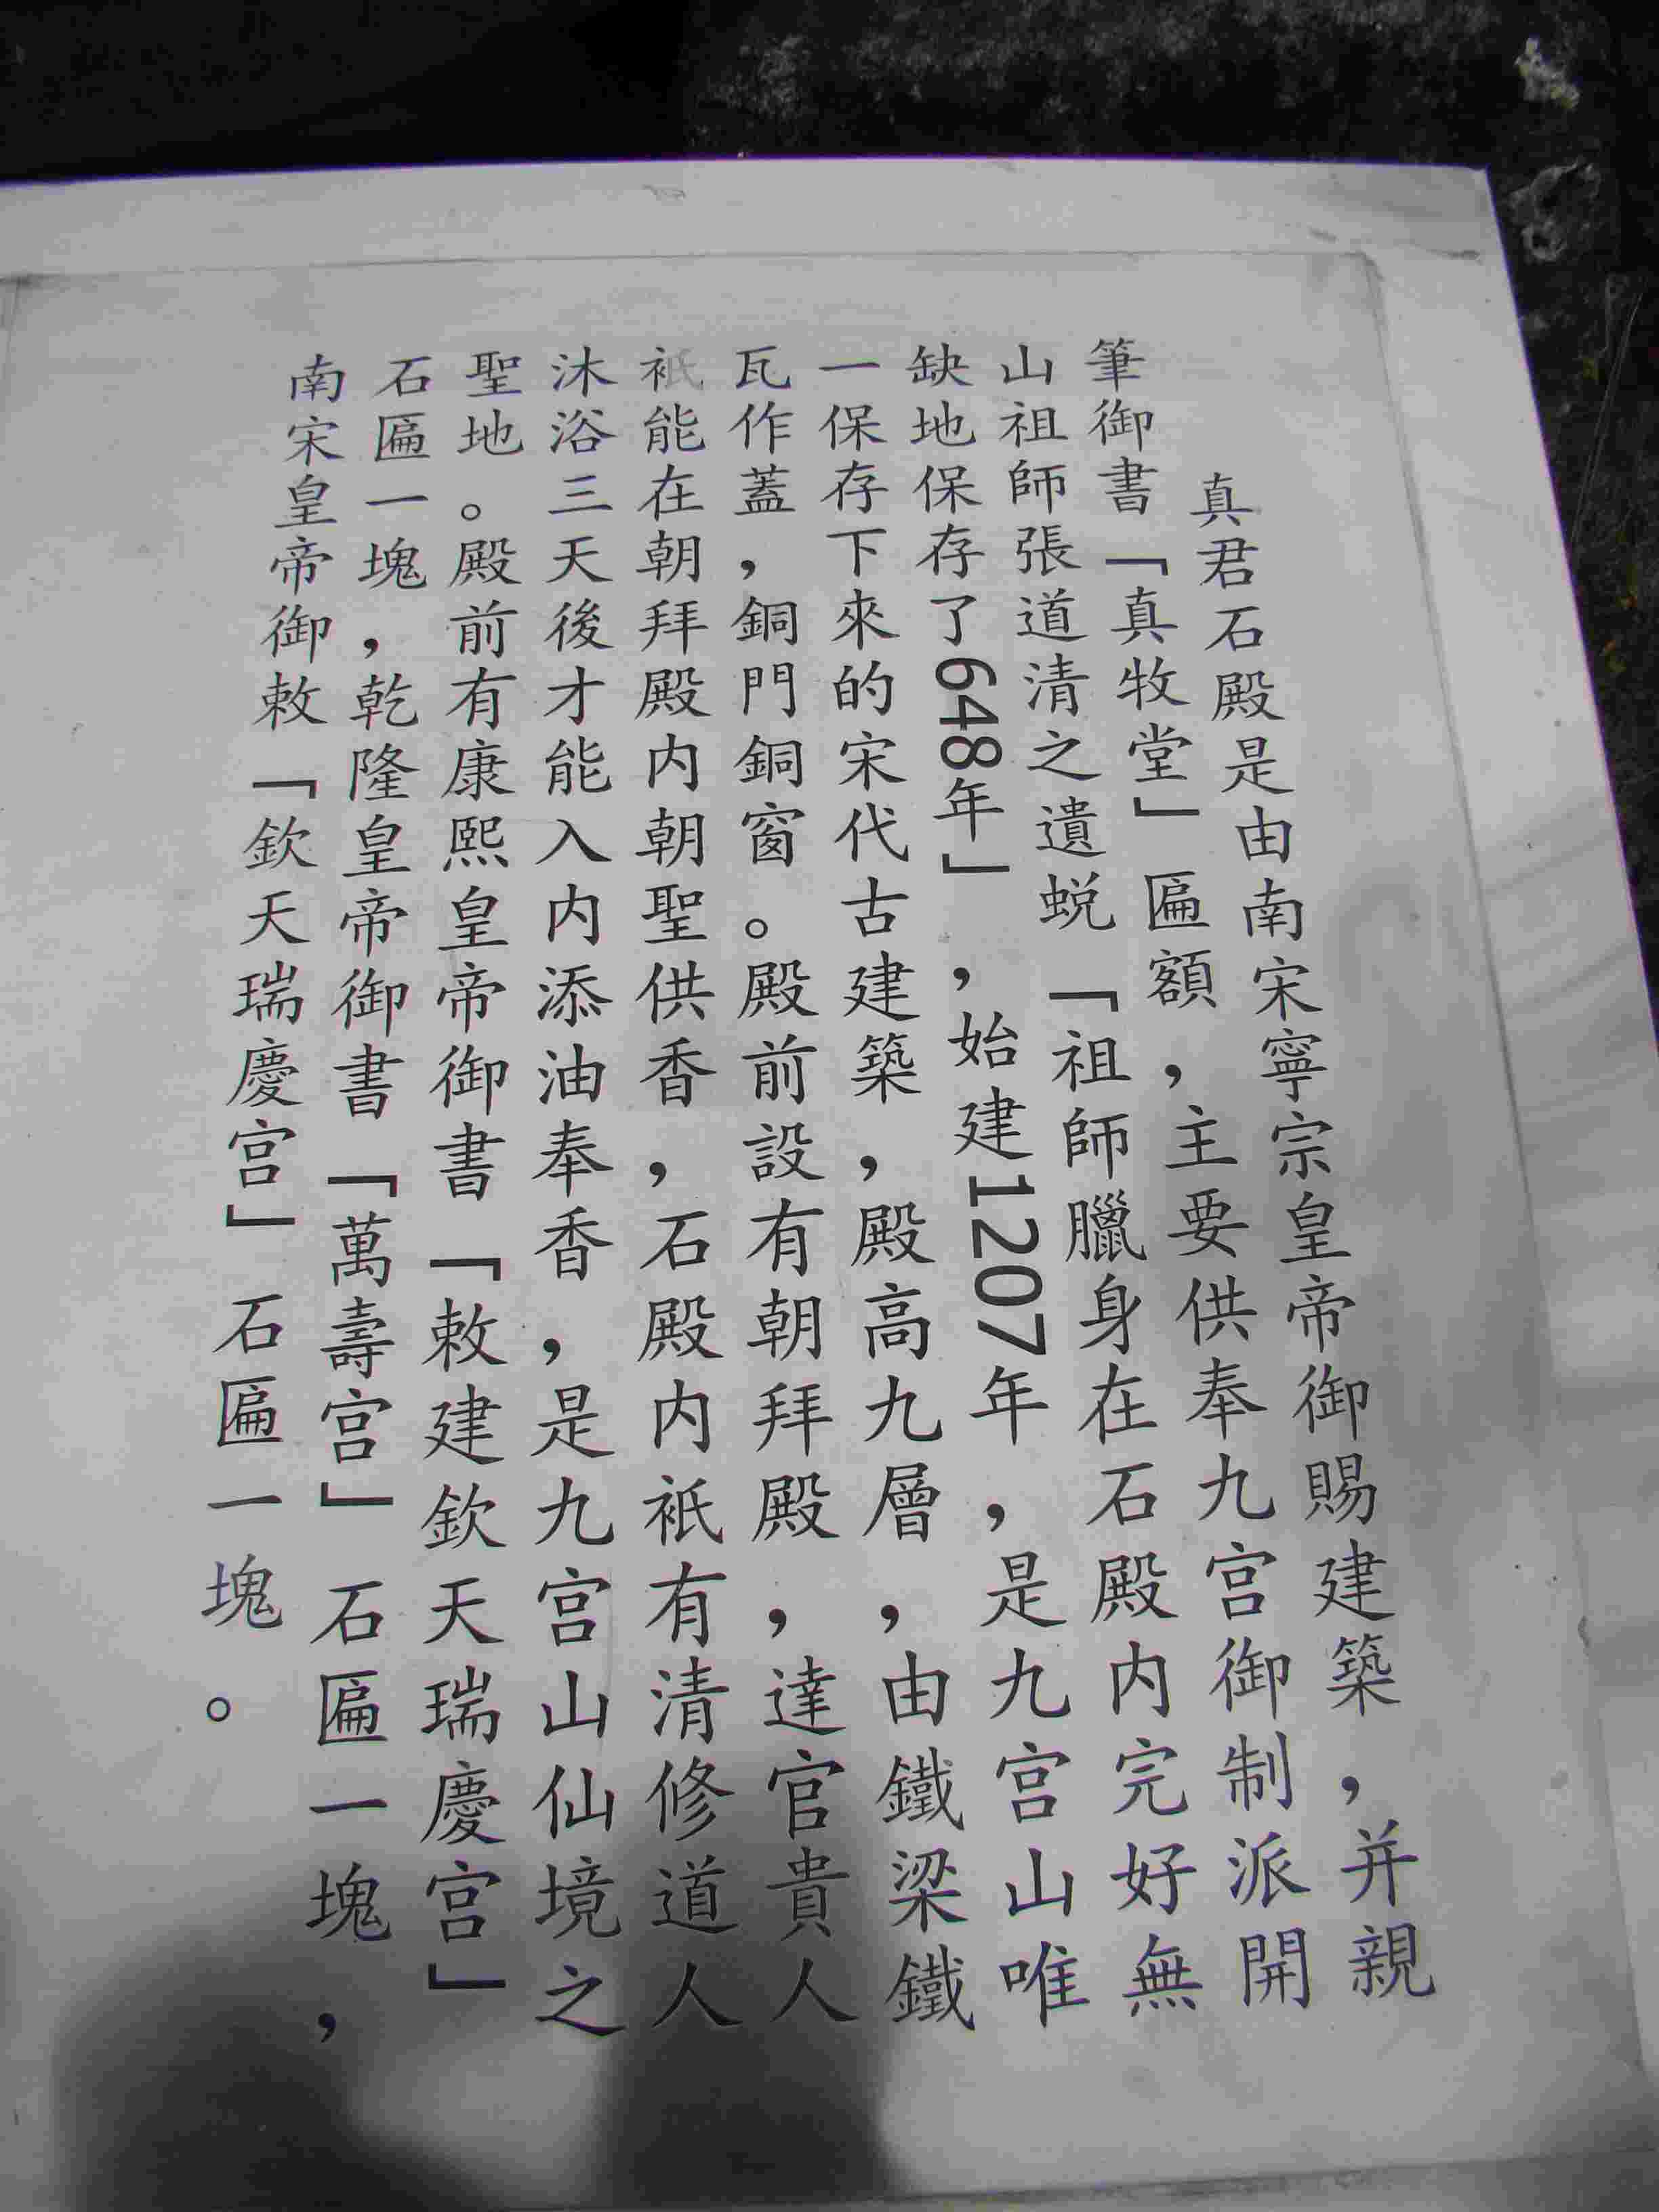 真君石殿是由南宋寧宗皇帝御賜建築，并親
筆御書「真牧堂」匾額，主要供奉九宫御制派開
山祖師張道清之遺蜕「祖師臘身在石殿内完好無
缺地保存了648年」，始建1207年，是九宫山唯
一保存下來的宋代古建築，殿高九層，由鐵梁鐵
瓦作蓋，銅門銅窗。殿前設有朝拜殿，達官貴人
衹能在朝拜殿内朝聖供香，石殿内衹有清修道人
沐浴三天後才能入内添油奉香，是九宫山仙境之
聖地。殿前有康熙皇帝御書「敕建欽天瑞慶宫」
石匾一塊，乾隆皇帝御書「萬壽宫」石匾一塊，
南宋皇帝御敕「欽天瑞慶宫」石匾一塊。